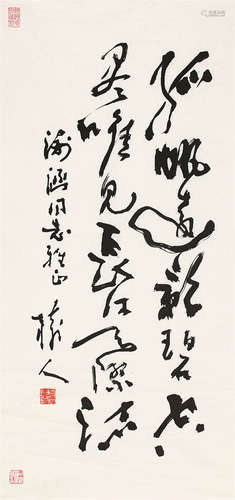 孤帆遠影碧空
盡唯見長江天際流
同志雅正
人